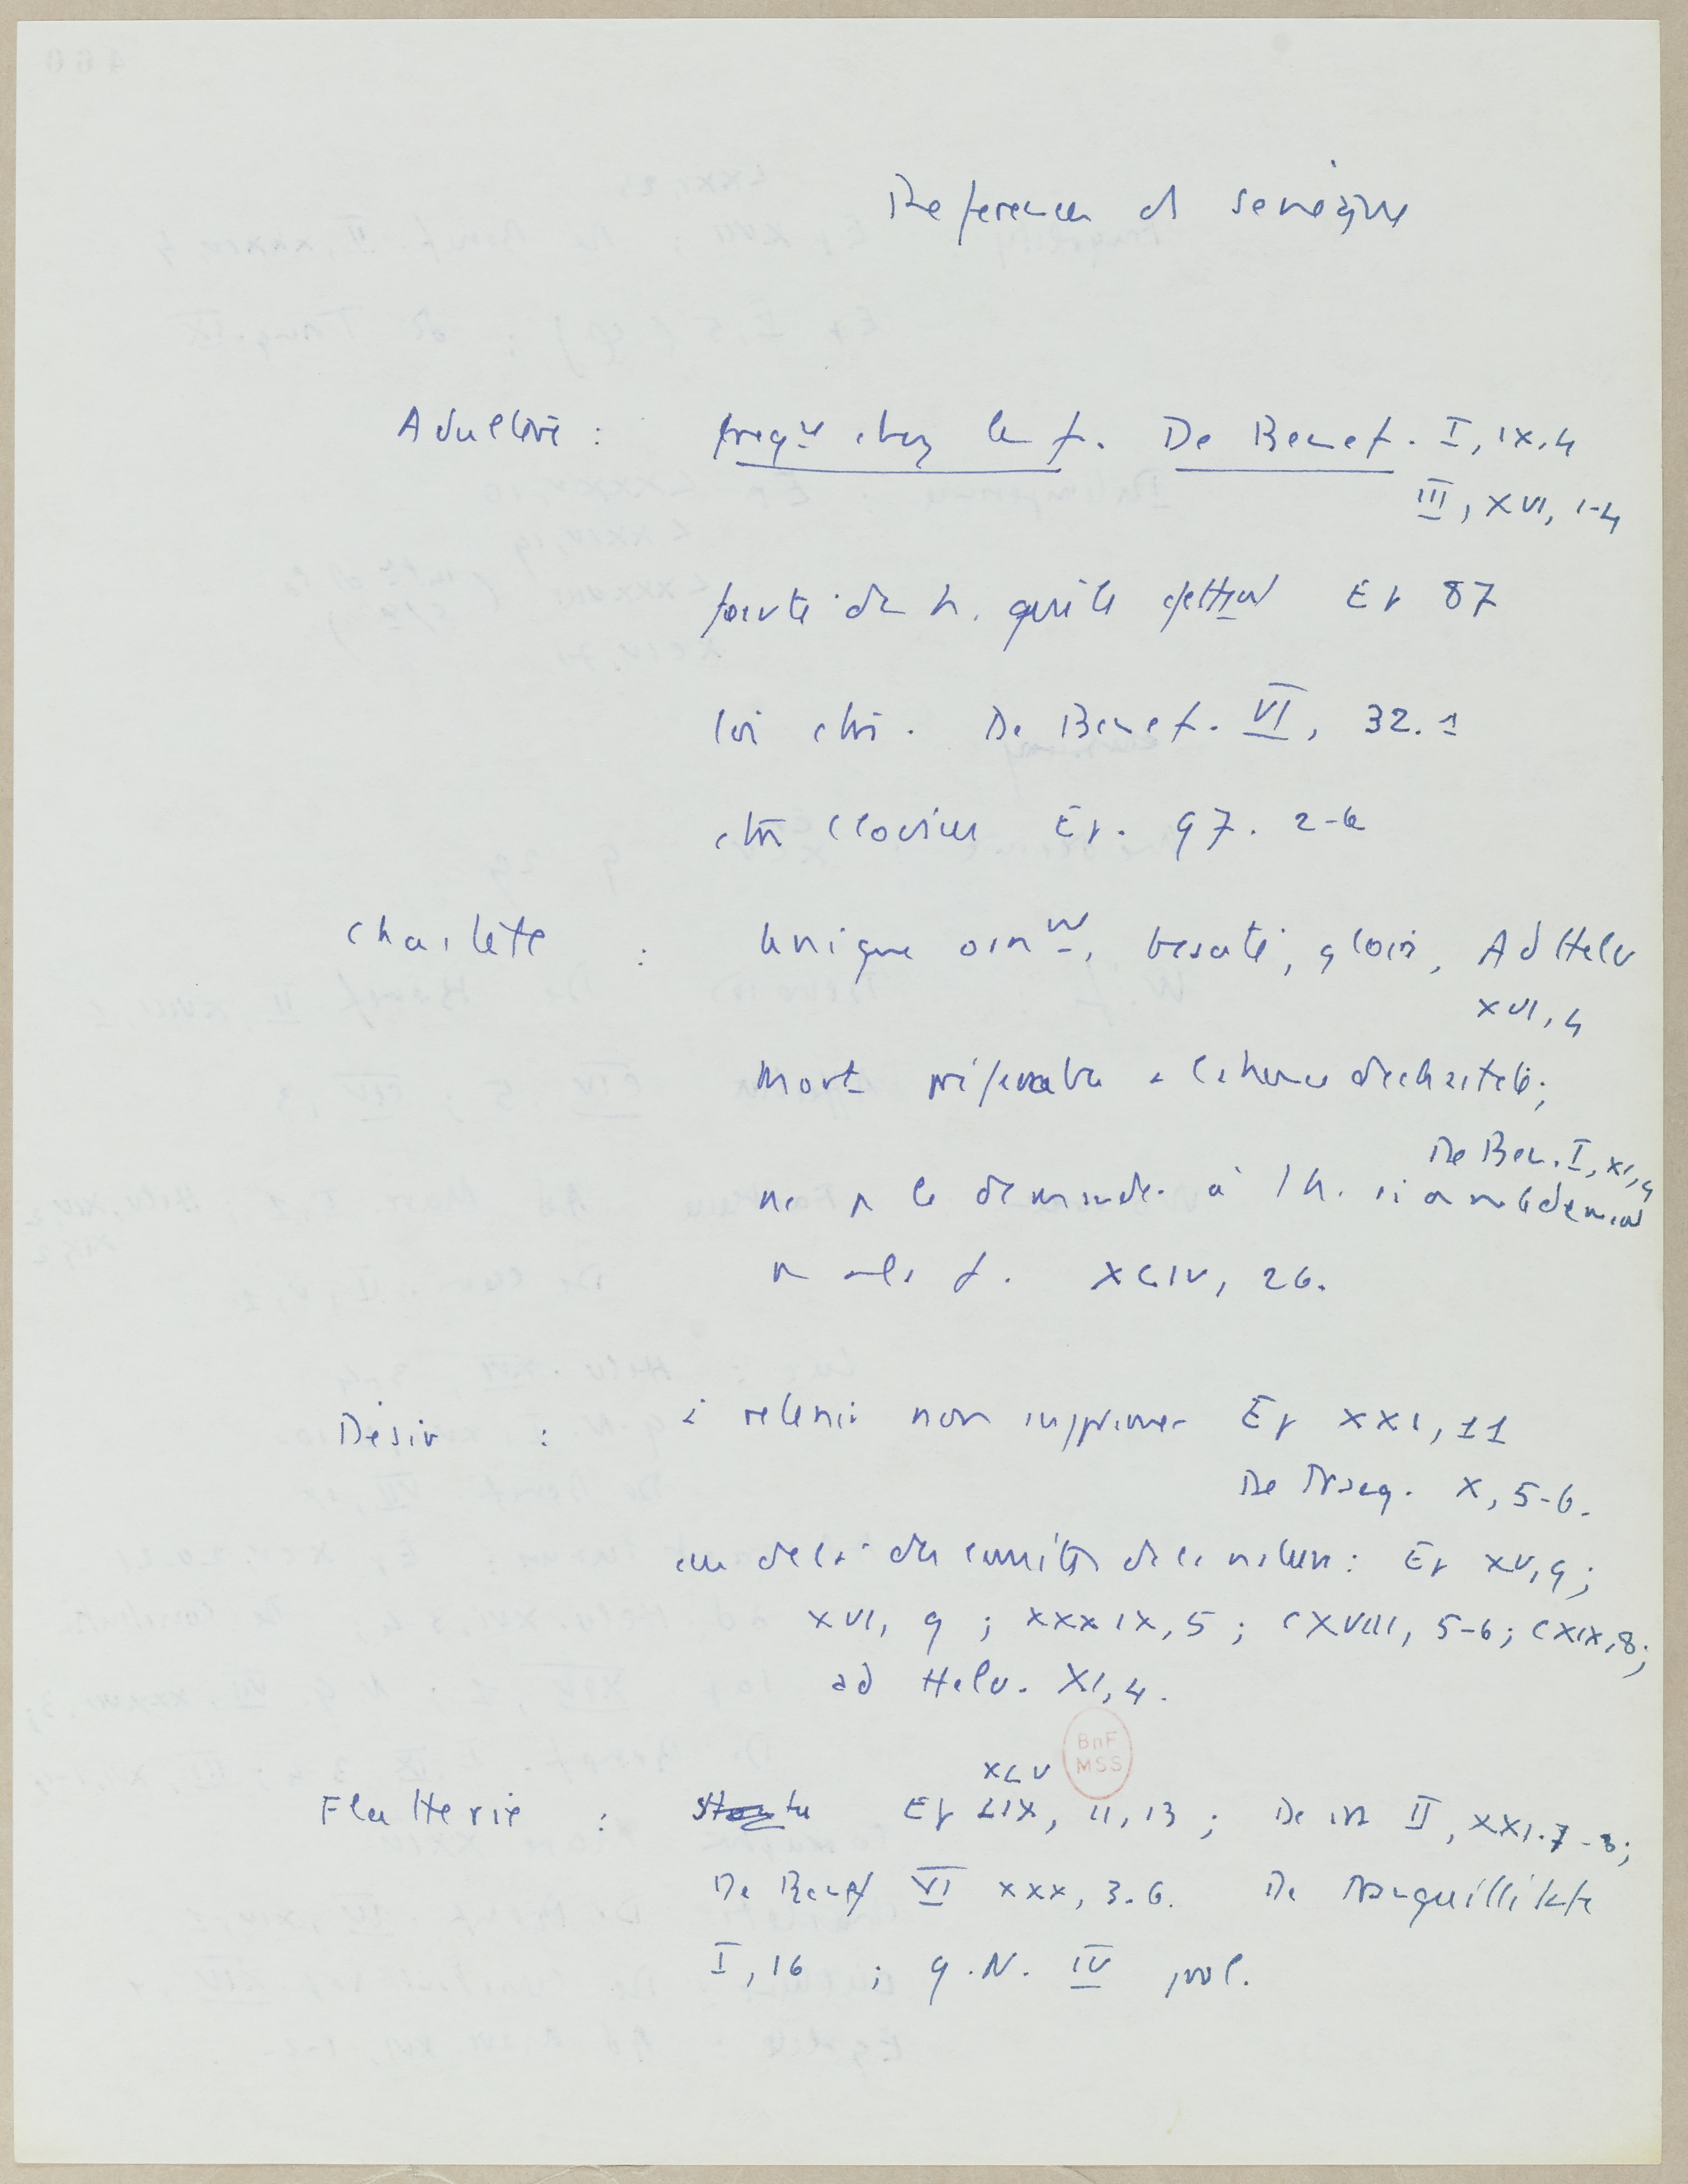 References ds Seneque
Adultere : freqᵗ chez les f. De Benef. I, IX, 4
III, XVI, 1-4
faute des h. quils Ep 87
loi ctr. De Benef. VI, 32. 1
ctr Clodius Ep. 97. 2-6
Chastete : unique ornᵗ, beauté, gloire, Ad Helv
XVI, 4
Mort préferable a la de chasteté;
De Ben. I, XI, 4
ne p la demander à l h. si on ne la demand
p a la f. XCIV, 26.
Désir : à retenir non supprimer Ep XXI, 11
De Tranq. X, 5-6.
au dela des limites de la nature : Ep XV, 9;
XVI, 9 ; XXXIX, 5 ; CXVIII, 5-6; CXIX, 8;
ad Helv. XI, 4.
BnF
MSS
XLV
Flatterie : Ep LIX, 11, 13 ; De ira II, XXI. 7-8;
De Benef VI XXX, 3.6. De Tranquillitate
I, 16 ; Q.N. IV prol.